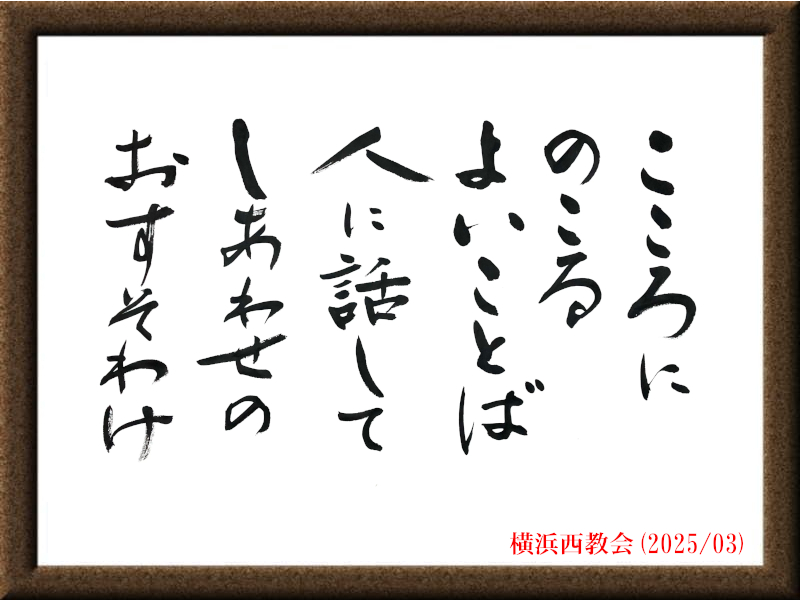 こころに
のこる
よいことば
人に話して
しあわせの
おすそわけ
横浜西教会(2025/03)